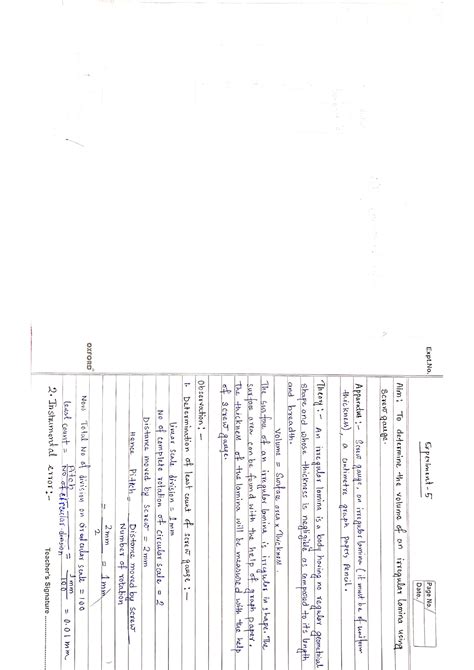 Expt.No.
Page No.
Date
Experiment - 5
Aim : To determine the volume of an irregular lamina using
Screw gauge.
Apparatus :- Screw gauge, an irregular lamina (it must be of uniform
thickness), a centimetre graph paper, Pencil.
Theory :- An irregular lamina is a body having no regular geometrical
shape and whose thickness is negligible as compared to its length
and breadth.
Volume = Surface area x Thickness.
The surface of an irregular lamina is irregular in shape. The
surface area can be found with the help of graph paper.
The thickness of the lamina will be measured with the help
of screw gauge.
Observation :-
1. Determination of least count of screw gauge :-
Linear scale division = 1mm
No of complete rotation of circular scale = 2
Distance moved by screw = 2mm
Hence Pitch = Distance moved by screw
Number of rotation
= 2mm
2
= 1mm
Now Total No of division on circular scale = 100
Least count = Pitch
No of circular division
= 1mm
100
= 0.01 mm
2. Instrumental error :-
OXFORD
Teacher's Signature